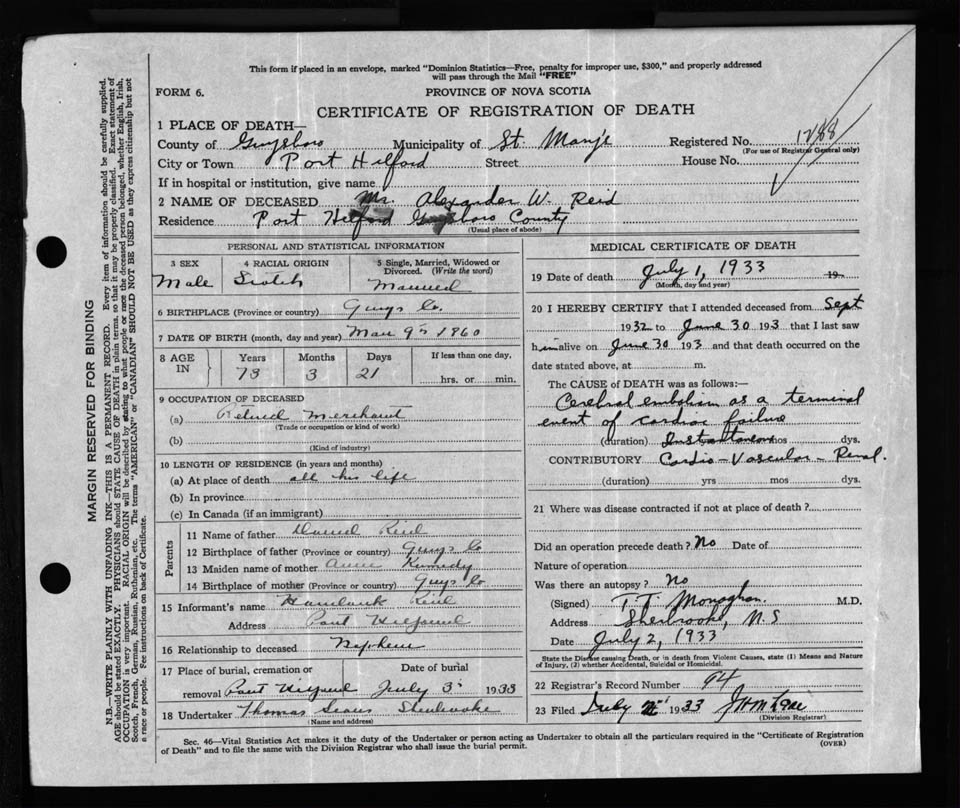 This form if placed in an envelope, marked "Dominion Statistics—Free, penalty for improper use, $300," and properly addressed
will pass through the Mail "FREE"
FORM 6.
PROVINCE OF NOVA SCOTIA
CERTIFICATE OF REGISTRATION OF DEATH
1 PLACE OF DEATH—
County of Guysboro Municipality of St. Mary's Registered No. 1288
(For use of Registrar General only)
City or Town Port Hilford Street House No.
If in hospital or institution, give name
2 NAME OF DECEASED Mr. Alexander W. Reid
Residence Port Hilford Guysboro County
(Usual place of abode)
PERSONAL AND STATISTICAL INFORMATION
3 SEX 4 RACIAL ORIGIN 5 Single, Married, Widowed or Divorced. (Write the word)
Male Scotch Married
6 BIRTHPLACE (Province or country) Guys Co.
7 DATE OF BIRTH (month, day and year) Mar 9th 1860
8 AGE IN Years Months Days If less than one day,
73 3 21 hrs. or min.
9 OCCUPATION OF DECEASED
(a) Retired Merchant
(Trade or occupation or kind of work)
(b)
(Kind of industry)
10 LENGTH OF RESIDENCE (in years and months)
(a) At place of death all his life
(b) In province
(c) In Canada (if an immigrant)
Parents
11 Name of father David Reid
12 Birthplace of father (Province or country) Guys Co
13 Maiden name of mother Annie Kennedy
14 Birthplace of mother (Province or country) Guys Co
15 Informant's name Reid
Address Port Hilford
16 Relationship to deceased Nephew
17 Place of burial, cremation or Date of burial
removal Port Hilford July 3 1933
18 Undertaker Thomas Sherbrooke
(Name and address)
MEDICAL CERTIFICATE OF DEATH
19 Date of death July 1, 1933 19
(Month, day and year)
20 I HEREBY CERTIFY that I attended deceased from Sept
1932 to June 30 193 that I last saw
him alive on June 30 193 and that death occurred on the
date stated above, at m.
The CAUSE of DEATH was as follows:—
Cerebral embolism as a terminal
event of cardiac failure
(duration) Instantaneous mos dys.
CONTRIBUTORY Cardio-Vascular-Renal.
(duration) yrs mos dys.
21 Where was disease contracted if not at place of death?
Did an operation precede death? No Date of
Nature of operation
Was there an autopsy? No
(Signed) T.T. Monaghan. M.D.
Address Sherbrooke, N.S
Date July 2, 1933
State the Disease causing Death, or in death from Violent Causes, state (1) Means and Nature
of Injury, (2) whether Accidental, Suicidal or Homicidal.
22 Registrar's Record Number 94
23 Filed July 1933
(Division Registrar)
Sec. 46—Vital Statistics Act makes it the duty of the Undertaker or person acting as Undertaker to obtain all the particulars required in the "Certificate of Registration
of Death" and to file the same with the Division Registrar who shall issue the burial permit.
(OVER)
MARGIN RESERVED FOR BINDING
N.B.—WRITE PLAINLY WITH UNFADING INK—THIS IS A PERMANENT RECORD. Every item of information should be carefully supplied.
AGE should be stated EXACTLY. PHYSICIANS should STATE CAUSE OF DEATH in plain terms, so that it may be properly classified. Exact statement of
OCCUPATION is very important. RACIAL ORIGIN will be described by stating to what people or race the deceased person belonged, whether English, Irish,
Scotch, French, German, Russian, Ruthenian, etc. The terms "AMERICAN" or "CANADIAN" SHOULD NOT BE USED as they express citizenship but not
a race or people. See instructions on back of Certificate.